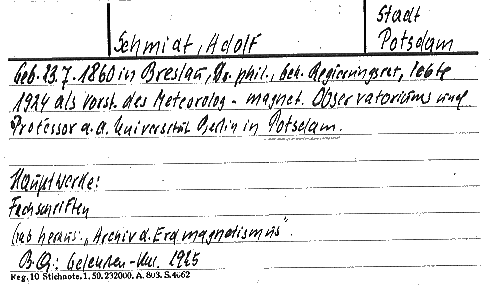 Stadt
Schmidt, Adolf Potsdam
Geb. 23.7.1860 in Breslau, Dr. phil., Geh. Regierungsrat, lebte
1924 als Vorst. des Meteorolog-magnet. Observatoriums und
Professor a.d. Universität Berlin in Potsdam.
Hauptwerke:
Fachschriften
Gab heraus: „Archiv d. Erdmagnetismus".
B.Q.: Gelehrten-Kal. 1925
Reg. 10 Stichnote. 1. 50. 232000. A. 803. S. 4662